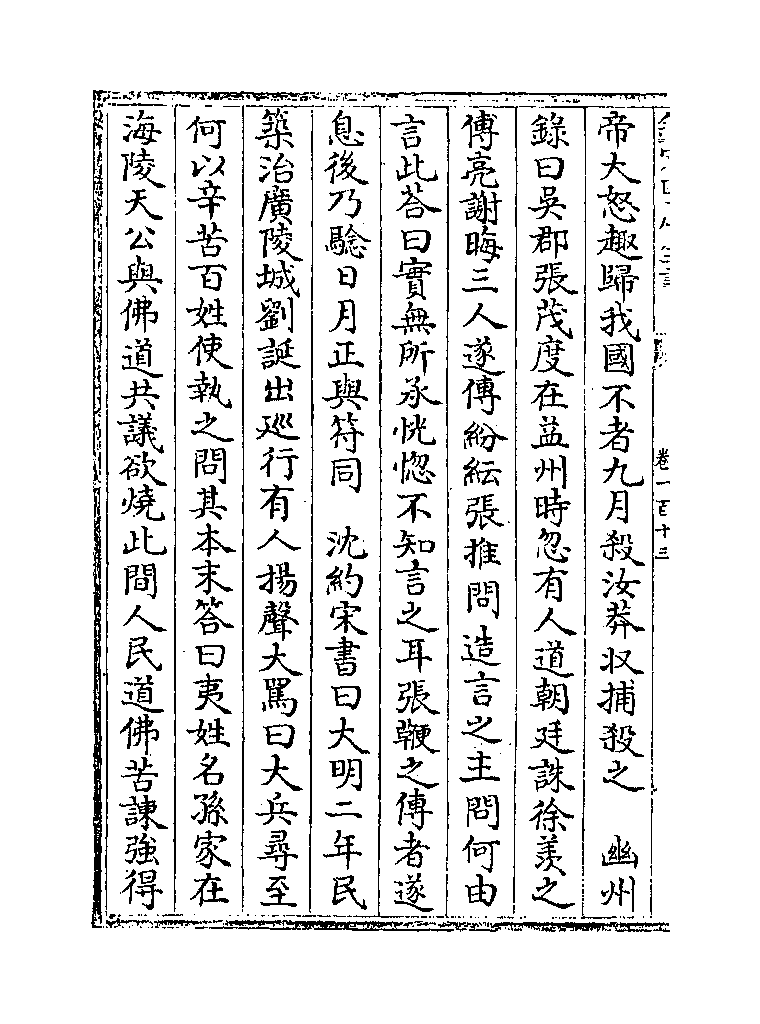 卷一百十三
帝大怒趣歸我國不者九月殺汝莽収捕殺之　幽州
錄曰吳郡張茂度在益州時忽有人道朝廷誅徐羨之
傅亮謝晦三人遂傳紛紜張推問造言之主問何由
言此荅曰實無所承恍惚不知言之耳張鞭之傳者遂
息後乃驗日月正與符同　沈約宋書曰大明二年民
築治廣陵城劉誕出廵行有人揚聲大罵曰大兵尋至
何以辛苦百姓使執之問其本末答曰夷姓名孫家在
海陵天公與佛道共議欲燒此間人民道佛苦諫強得